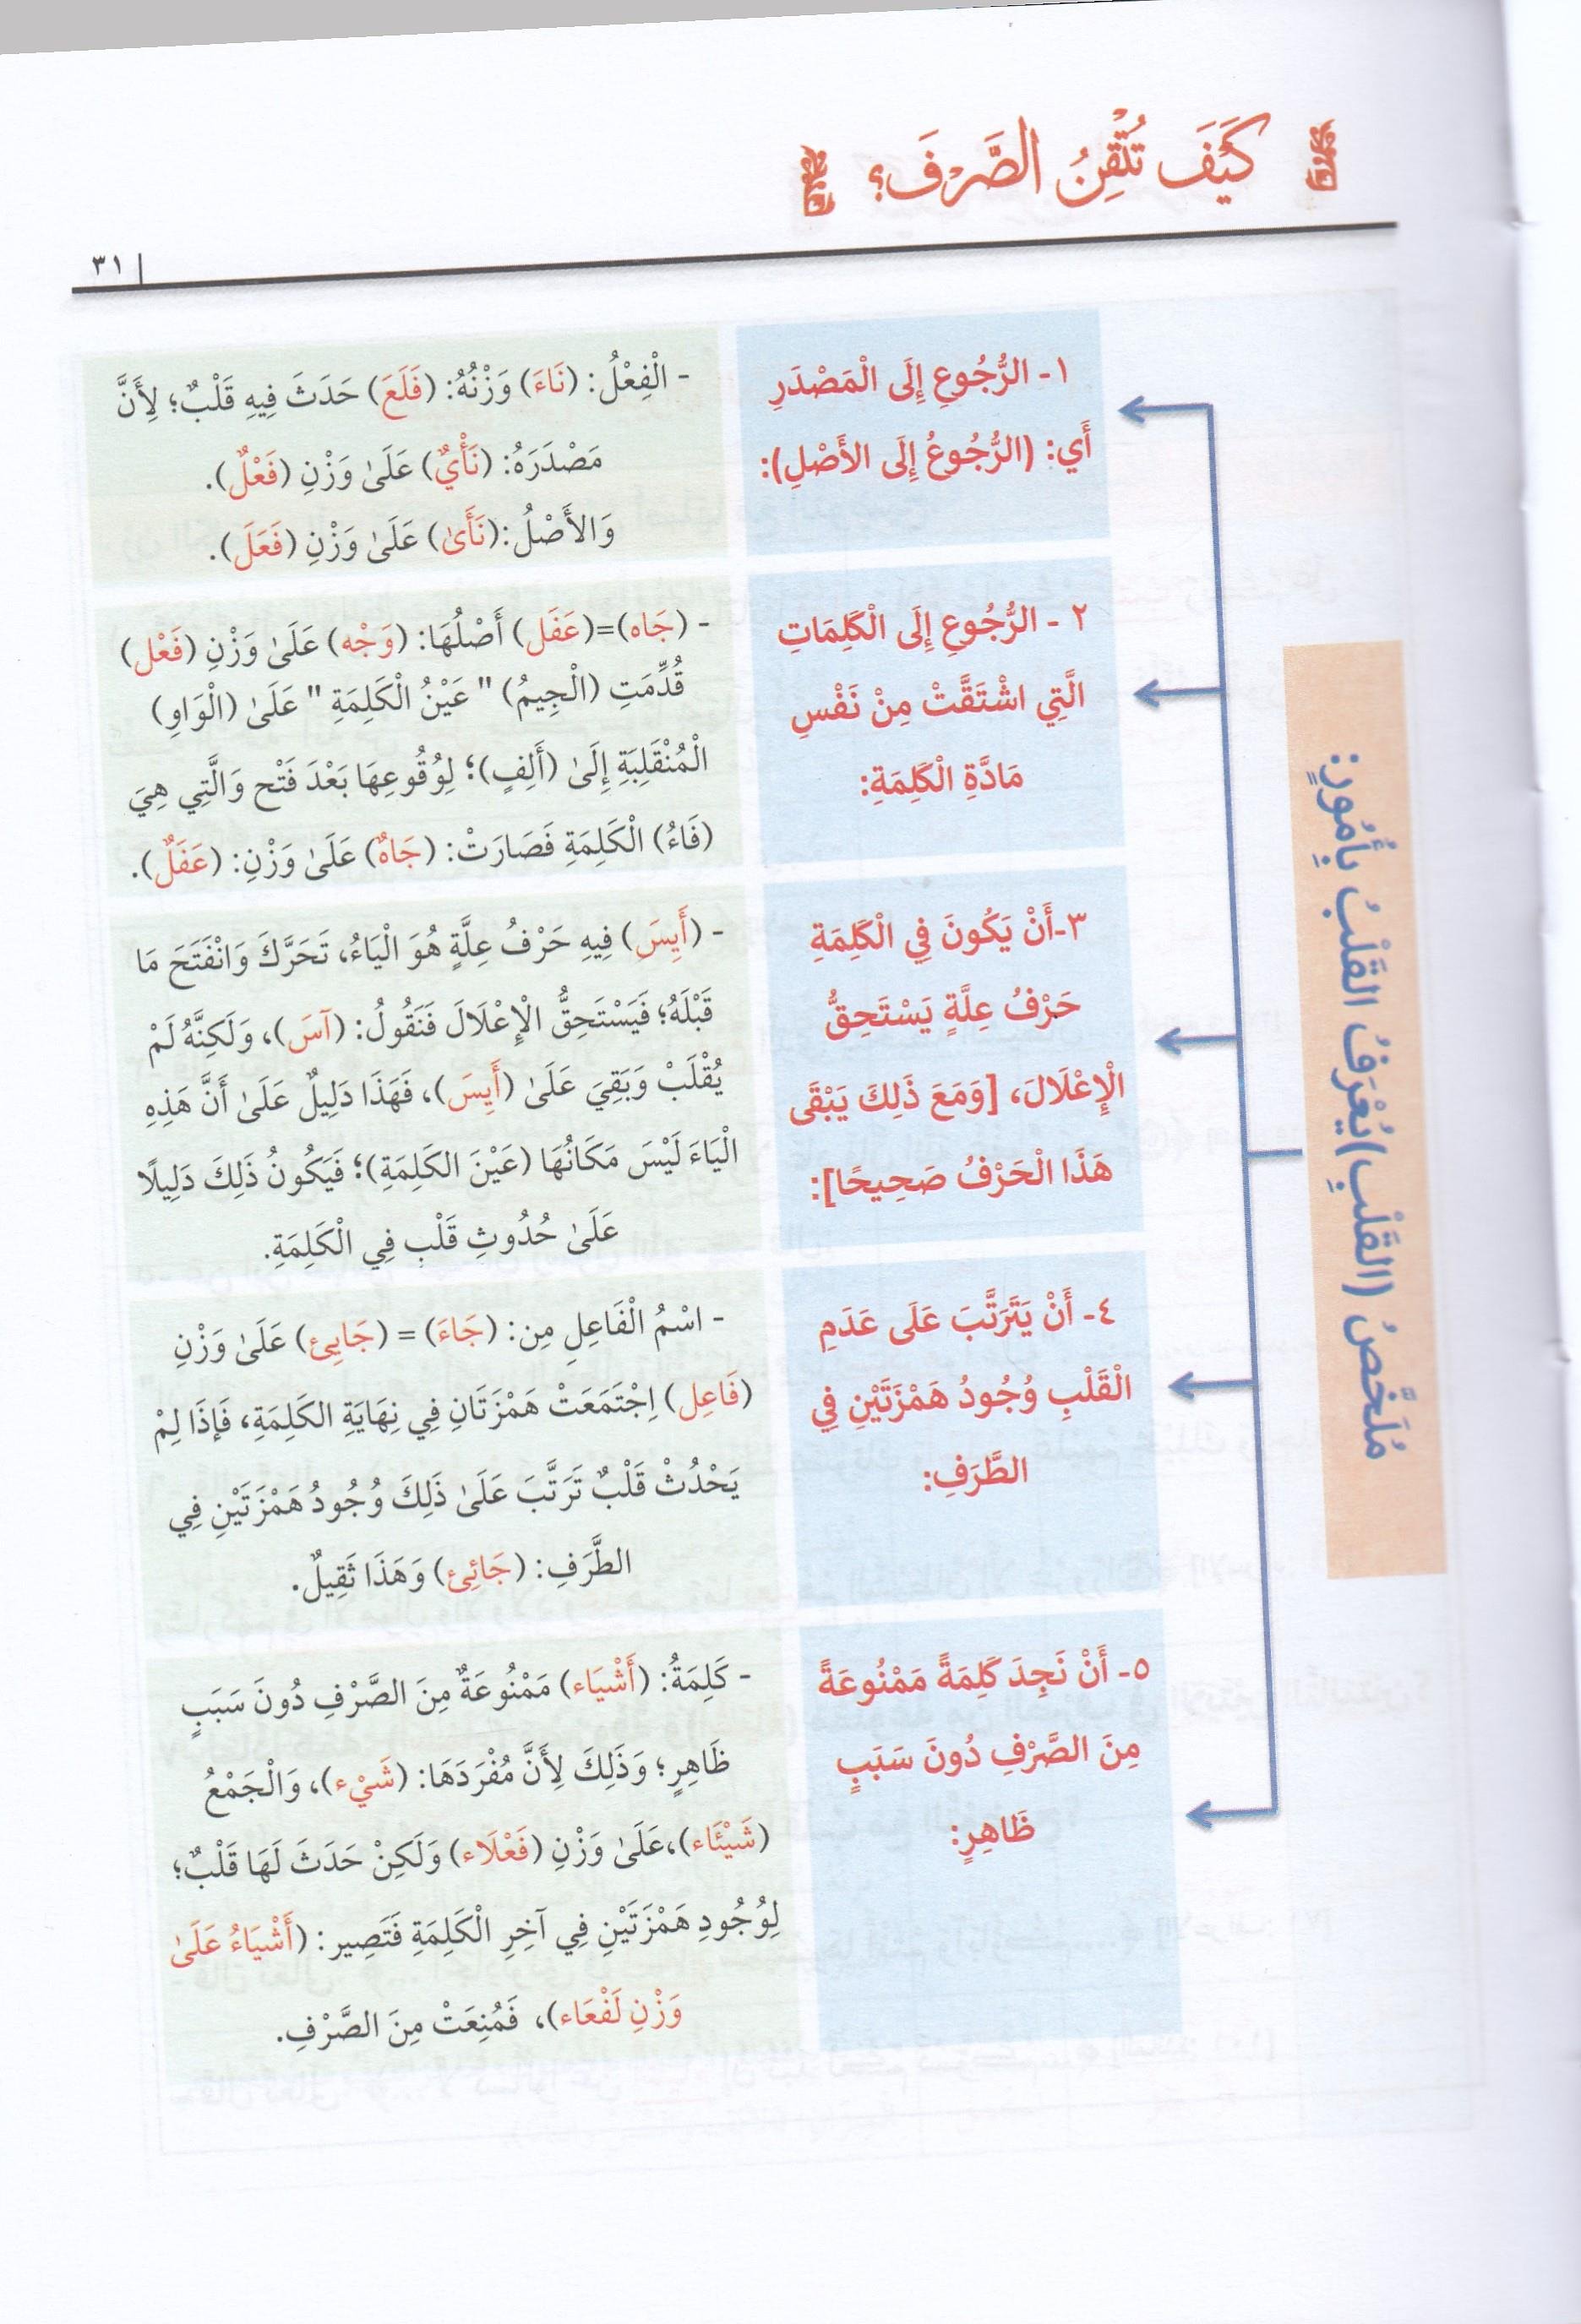 كَيْفَ تُتْقِنُ الصَّرْفَ؟
٣١
مُلَخَّصُ (القَلْبِ) يُعْرَفُ القَلْبُ بِأُمُورٍ:
١- الرُّجُوعِ إِلَى الْمَصْدَرِ
أَي: (الرُّجُوعُ إِلَى الأَصْلِ):
- الْفِعْلُ: (نَاءَ) وَزْنُهُ: (فَلَعَ) حَدَثَ فِيهِ قَلْبٌ؛ لِأَنَّ
مَصْدَرَهُ: (نَأْيٌ) عَلَىٰ وَزْنِ (فَعْلٌ).
وَالأَصْلُ:(نَأَىٰ) عَلَىٰ وَزْنِ (فَعَلَ).
٢ - الرُّجُوعِ إِلَى الْكَلِمَاتِ
الَّتِي اشْتَقَّتْ مِنْ نَفْسِ
مَادَّةِ الْكَلِمَةِ:
- (جَاه)=(عَفَل) أَصْلُهَا: (وَجْه) عَلَىٰ وَزْنِ (فَعْل)
قُدِّمَتِ (الْجِيمُ) " عَيْنُ الْكَلِمَةِ " عَلَىٰ (الْوَاوِ)
الْمُنْقَلِبَةِ إِلَىٰ (أَلِفٍ)؛ لِوُقُوعِهَا بَعْدَ فَتْح وَالَّتِي هِيَ
(فَاءُ) الْكَلِمَةِ فَصَارَتْ: (جَاهٌ) عَلَىٰ وَزْنِ: (عَفَلٌ).
٣-أَنْ يَكُونَ فِي الْكَلِمَةِ
حَرْفُ عِلَّةٍ يَسْتَحِقُّ
الْإِعْلَالَ، [وَمَعَ ذَلِكَ يَبْقَى
هَذَا الْحَرْفُ صَحِيحًا]:
- (أَيِسَ) فِيهِ حَرْفُ عِلَّةٍ هُوَ الْيَاءُ، تَحَرَّكَ وَانْفَتَحَ مَا
قَبْلَهُ؛ فَيَسْتَحِقُّ الْإِعْلَالَ فَنَقُولُ: (آسَ)، وَلَكِنَّهُ لَمْ
يُقْلَبْ وَبَقِيَ عَلَىٰ (أَيِسَ)، فَهَذَا دَلِيلٌ عَلَىٰ أَنَّ هَذِهِ
الْيَاءَ لَيْسَ مَكَانُهَا (عَيْنَ الكَلِمَةِ)؛ فَيَكُونُ ذَلِكَ دَلِيلًا
عَلَىٰ حُدُوثِ قَلْبٍ فِي الْكَلِمَةِ.
٤- أَنْ يَتَرَتَّبَ عَلَى عَدَمِ
الْقَلْبِ وُجُودُ هَمْزَتَيْنِ فِي
الطَّرَفِ:
- اسْمُ الْفَاعِلِ مِن: (جَاءَ) = (جَايِئ) عَلَىٰ وَزْنِ
(فَاعِل) اِجْتَمَعَتْ هَمْزَتَانِ فِي نِهَايَةِ الكَلِمَةِ، فَإذَا لِمْ
يَحْدُثْ قَلْبٌ تَرَتَّبَ عَلَىٰ ذَلِكَ وُجُودُ هَمْزَتَيْنِ فِي
الطَّرَفِ: (جَائِئ) وَهَذَا ثَقِيلٌ.
٥- أَنْ نَجِدَ كَلِمَةً مَمْنُوعَةً
مِنَ الصَّرْفِ دُونَ سَبَبٍ
ظَاهِرٍ:
- كَلِمَةُ: (أَشْيَاء) مَمْنُوعَةٌ مِنَ الصَّرْفِ دُونَ سَبَبٍ
ظَاهِرٍ؛ وَذَلِكَ لِأَنَّ مُفْرَدَهَا: (شَيْء)، وَالْجَمْعُ
(شَيْئَاء)،عَلَىٰ وَزْنِ (فَعْلَاء) وَلَكِنْ حَدَثَ لَهَا قَلْبٌ؛
لِوُجُودِ هَمْزَتَيْنِ فِي آخِرِ الْكَلِمَةِ فَتَصِير: (أَشْيَاءُ عَلَىٰ
وَزْنِ لَفْعَاء)، فَمُنِعَتْ مِنَ الصَّرْفِ.